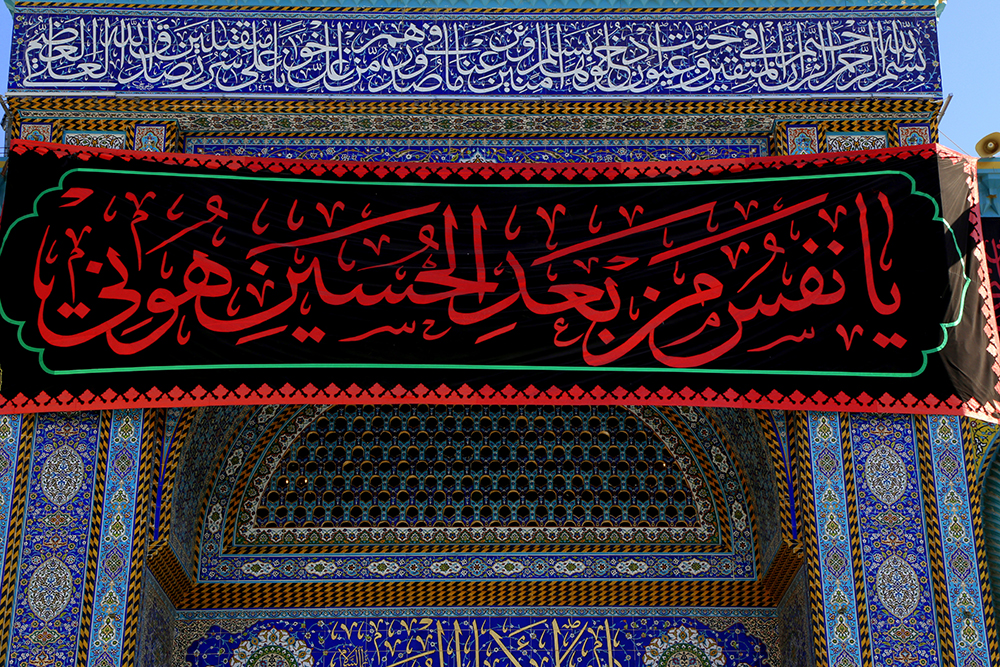 بسم الله الرحمن الرحيم إن المتقين في جنات وعيون ادخلوها بسلام آمنين ونزعنا ما في صدورهم من غل إخوانا على سرر متقابلين صدق الله العلي العظيم
يا نفس من بعد الحسين هوني